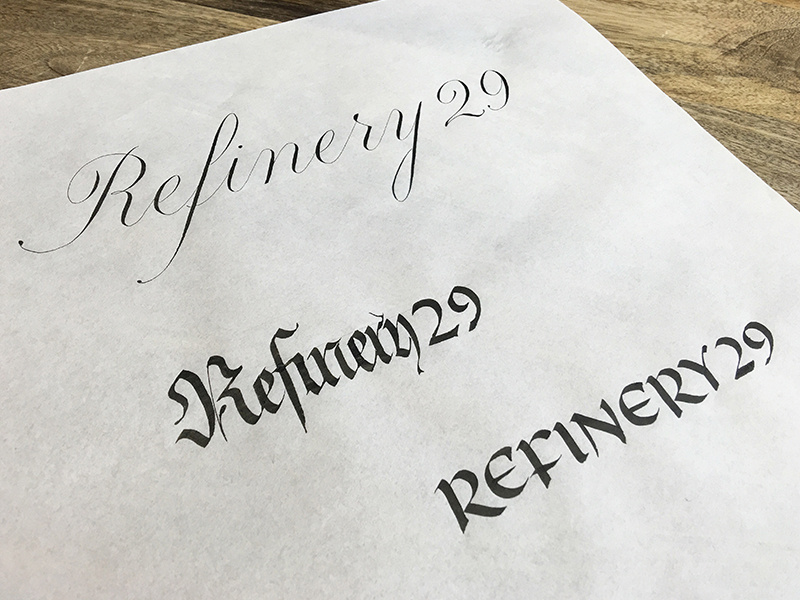 Refinery 29
Refinery 29
REFINERY 29